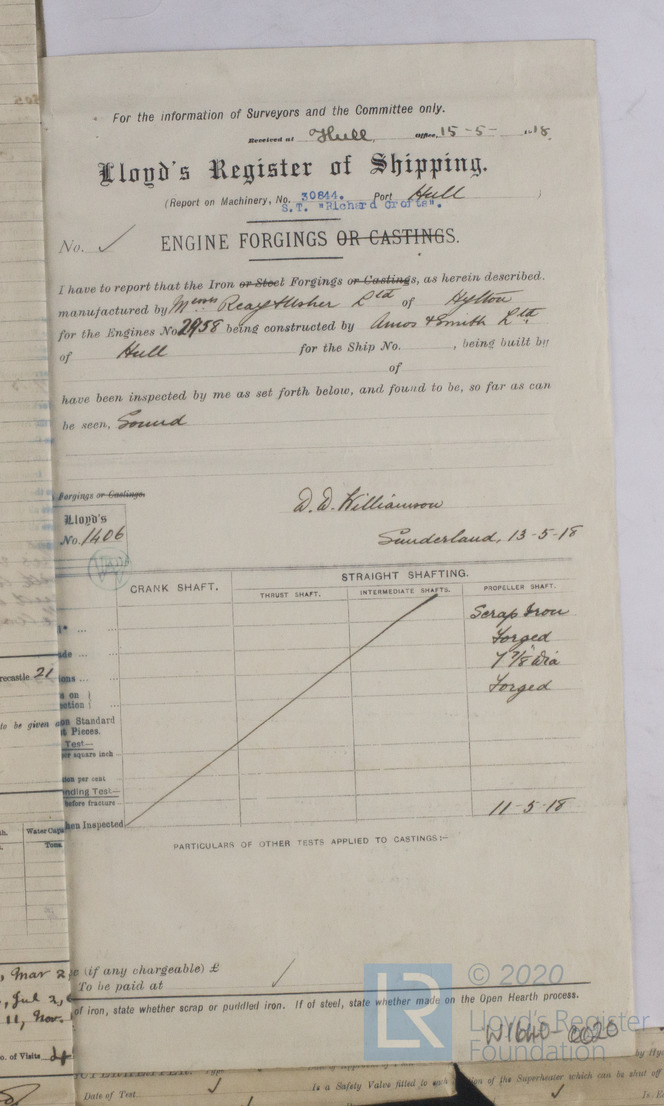 For the information of Surveyors and the Committee only.
Received at Hull Office, 15-5- 1918.
Lloyd's Register of Shipping.
(Report on Machinery, No. 30844. Port Hull )
S.T. "Richard Crofts".
No. ✓ ENGINE FORGINGS OR CASTINGS.
I have to report that the Iron or Steel Forgings or Castings, as herein described.
manufactured by Messrs Reay & Usher Ltd of Hylton
for the Engines No 2958 being constructed by Amos & Smith Ltd
of Hull for the Ship No. , being built by
of
have been inspected by me as set forth below, and found to be, so far as can
be seen, Sound
Forgings or Castings.
D. D. Williamson
Lloyd's
No. 1406
Sunderland, 13-5-18
CRANK SHAFT.
STRAIGHT SHAFTING.
THRUST SHAFT. INTERMEDIATE SHAFTS. PROPELLER SHAFT.
Scrap Iron
Forged
7 7/8" dia
Forged
recastle 21
s on
ection
to be given
on Standard
t Pieces.
Test—
er square inch
ten per cent
nding Test—
before fracture
hen Inspected
11-5-18
Water Capa
Tons
PARTICULARS OF OTHER TESTS APPLIED TO CASTINGS:—
, Mar 2
(if any chargeable) £ ✓
, Jul 2,
To be paid at
11, Nov.
of iron, state whether scrap or puddled iron. If of steel, state whether made on the Open Hearth process.
LR
© 2020
Lloyd's Register
Foundation
W1640-0020
o. of Visits
by Hy
Date of Test
is a Safety Valve fitted to each
on of the Superheater which can be shut off